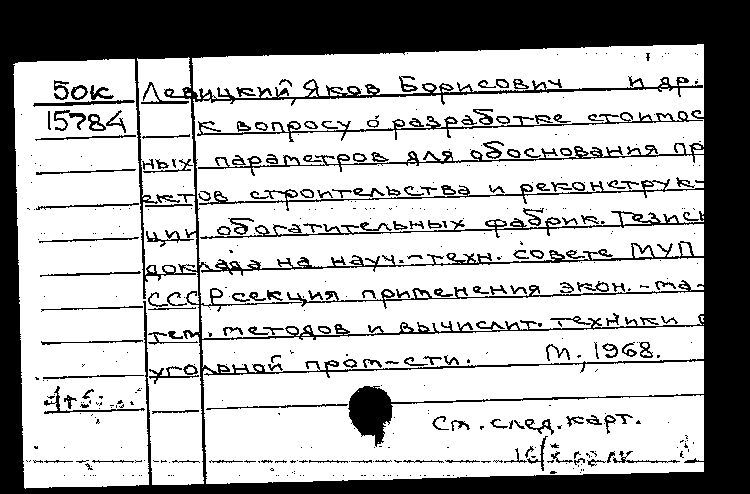 50к Левицкий, Яков Борисович и др.
15784 К вопросу о разработке стоимос
ных параметров для обоснования пр
ектов строительства и реконструк-
ции обогатительных фабрик. Тезисы
доклада на науч.-техн. совете МУП
СССР, секция применения экон.-ма-
тем. методов и вычислит. техники в
угольной пром-сти. М., 1968.
См. след. карт.